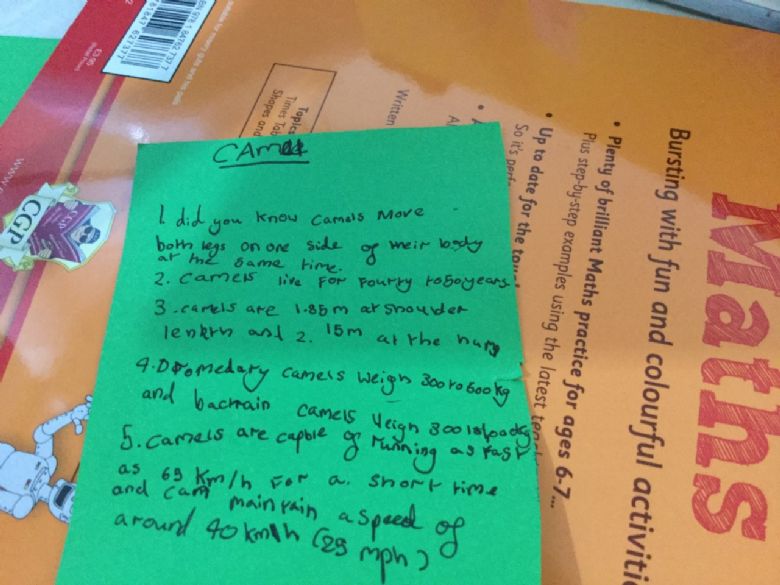 CAMEL
1. did you know camels move
both legs on one side of their body
at the same time.
2. camels live for fourty to 50 years
3. camels are 1.85m at shoulder
lenkth and 2. 15m at the hump
4. Dromedary camels weigh 300 to 600kg
and bactrain camels weigh 300 to
5. camels are capble of running as fast
as 65 km/h for a short time
and can maintain a speed of
around 40 km/h (25 mph)
Maths
Bursting with fun and colourful activiti
• Plenty of brilliant Maths practice for ages 6-7...
Plus step-by-step examples using the latest
• Up to date for the
So it's perf
Written
Topics
Times Tab
Shapes and
CGP
www.
£3.95